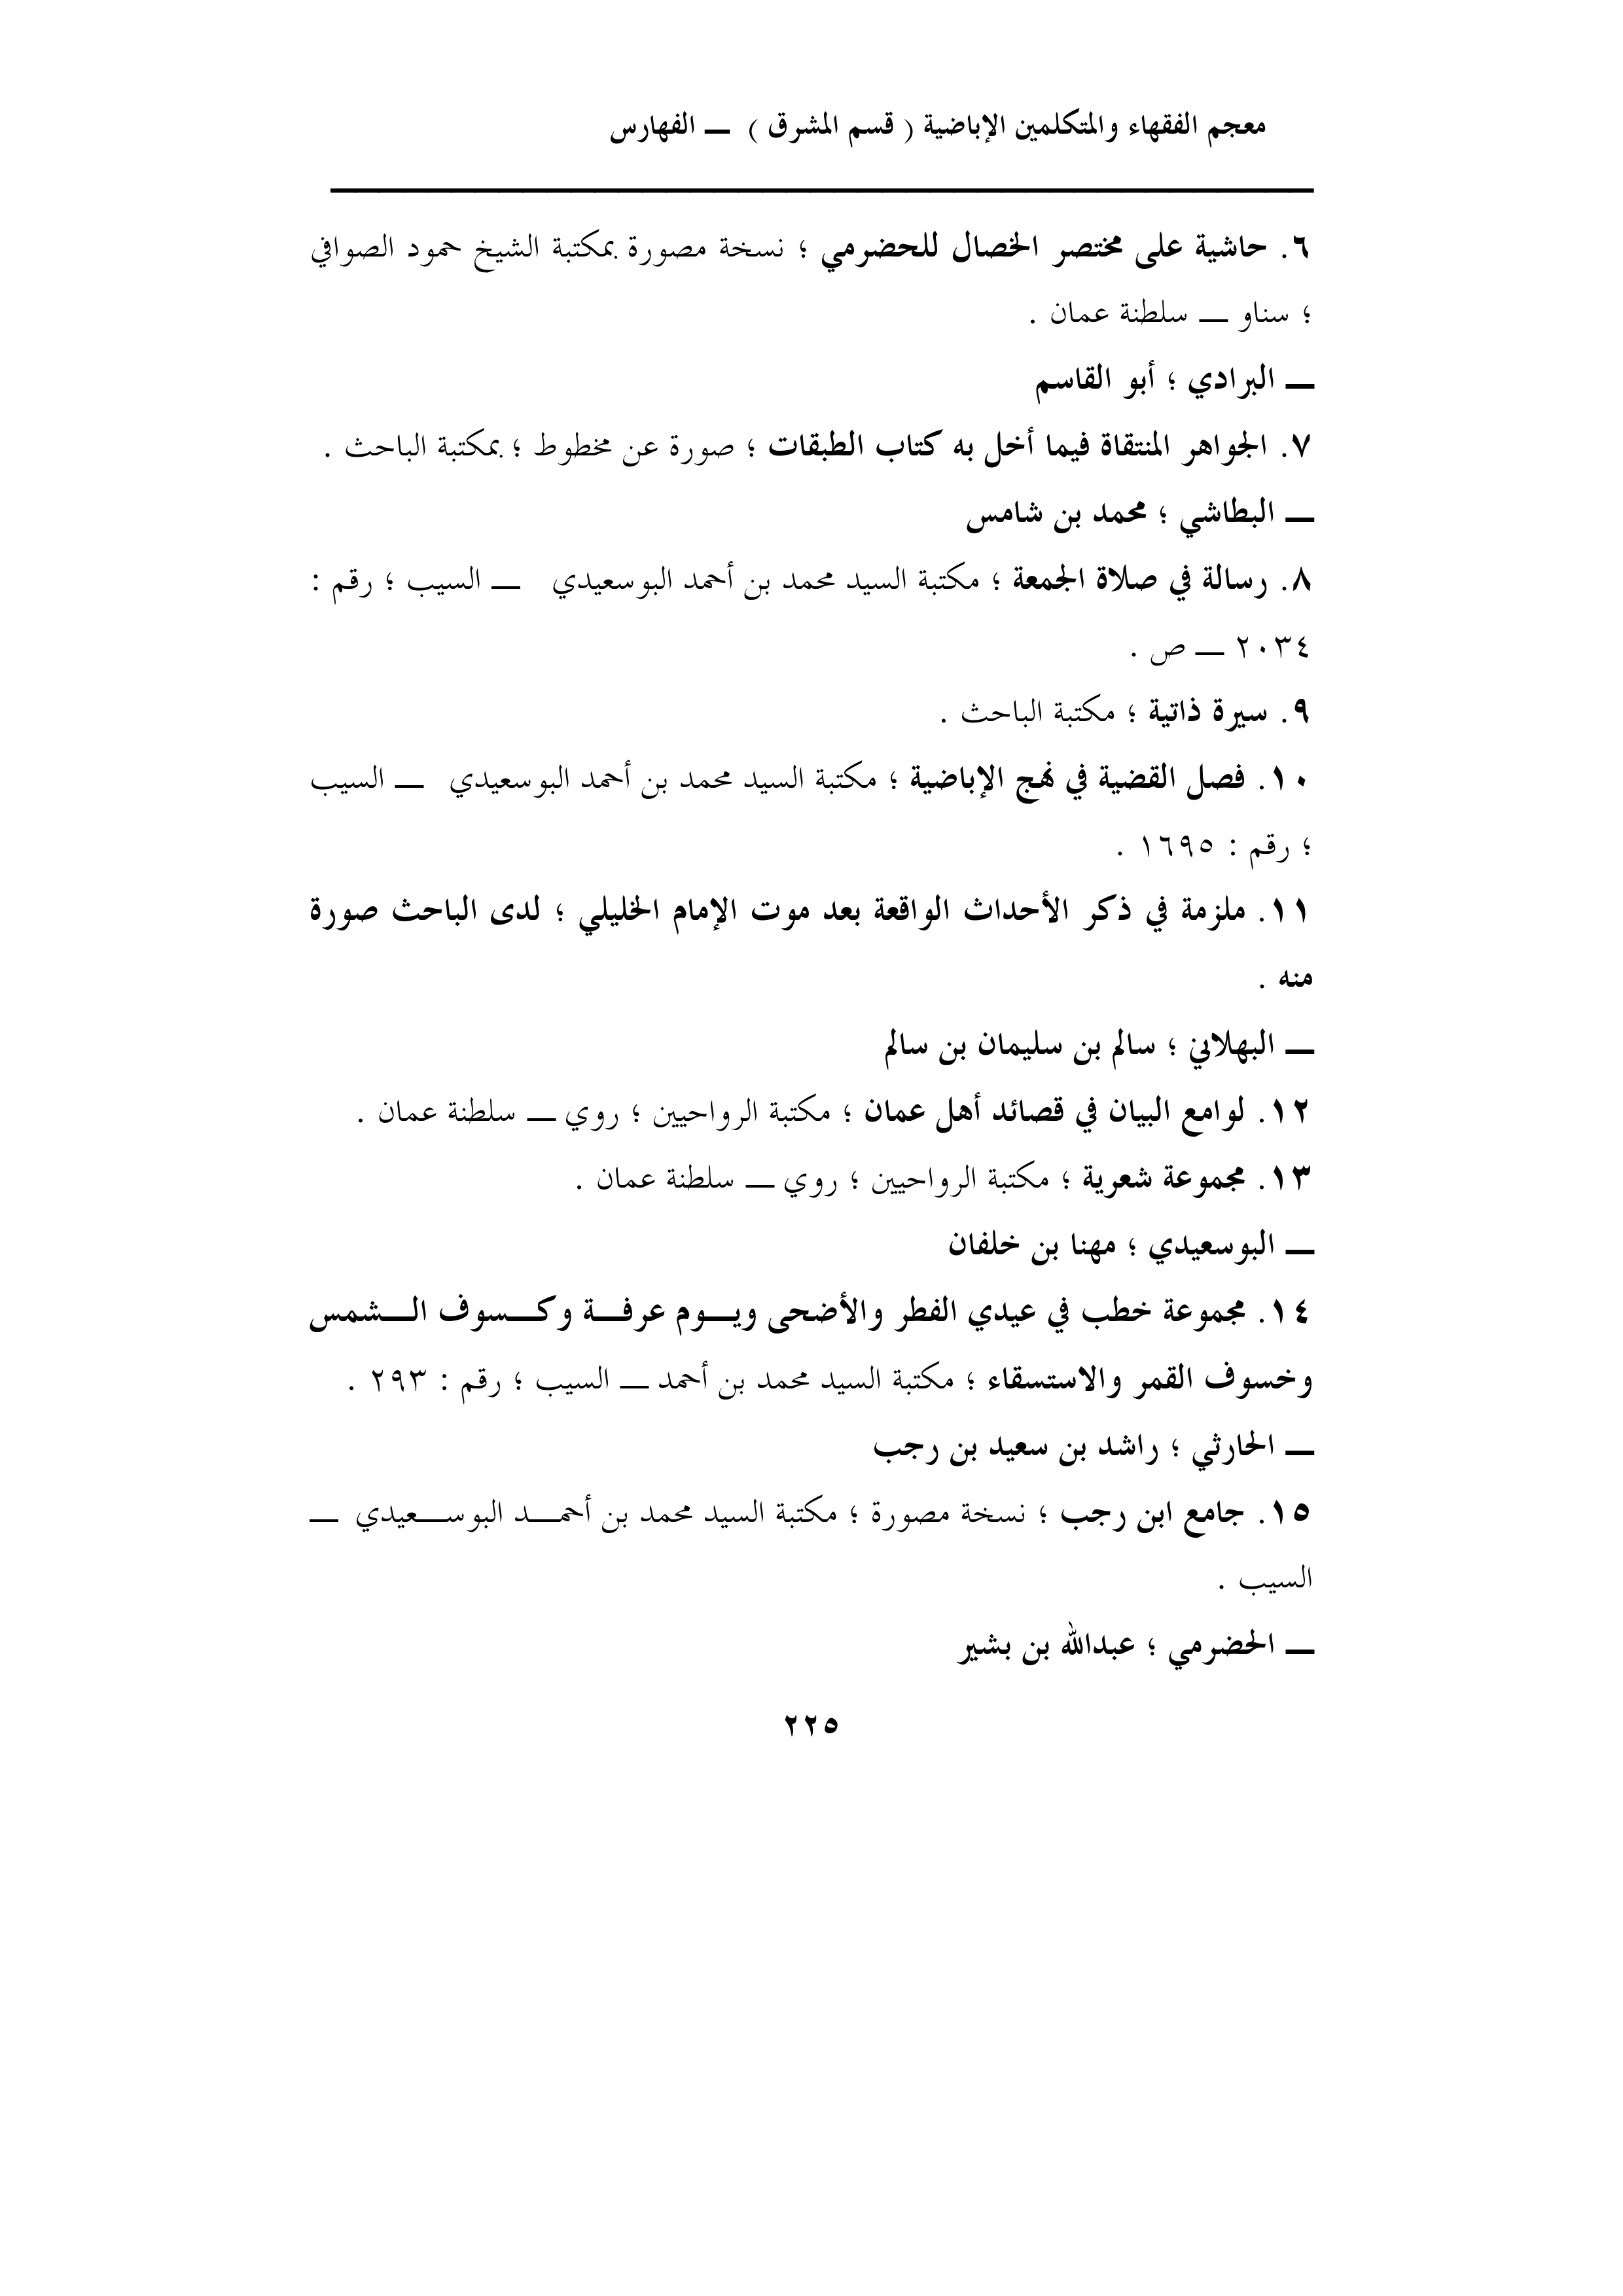 معجم الفقهاء والمتكلمين الإباضية ( قسم المشرق ) ـــ الفهارس
٦. حاشية على مختصر الخصال للحضرمي ؛ نسخة مصورة بمكتبة الشيخ حمود الصوافي
؛ سناو ـــ سلطنة عمان .
ـــ البرادي ؛ أبو القاسم
٧. الجواهر المنتقاة فيما أخل به كتاب الطبقات ؛ صورة عن مخطوط ؛ بمكتبة الباحث .
ـــ البطاشي ؛ محمد بن شامس
٨. رسالة في صلاة الجمعة ؛ مكتبة السيد محمد بن أحمد البوسعيدي ـــ السيب ؛ رقم :
٢٠٣٤ ـــ ص .
٩. سيرة ذاتية ؛ مكتبة الباحث .
١٠. فصل القضية في نهج الإباضية ؛ مكتبة السيد محمد بن أحمد البوسعيدي ـــ السيب
؛ رقم : ١٦٩٥ .
١١. ملزمة في ذكر الأحداث الواقعة بعد موت الإمام الخليلي ؛ لدى الباحث صورة
منه .
ـــ البهلاني ؛ سالم بن سليمان بن سالم
١٢. لوامع البيان في قصائد أهل عمان ؛ مكتبة الرواحيين ؛ روي ـــ سلطنة عمان .
١٣. مجموعة شعرية ؛ مكتبة الرواحيين ؛ روي ـــ سلطنة عمان .
ـــ البوسعيدي ؛ مهنا بن خلفان
١٤. مجموعة خطب في عيدي الفطر والأضحى ويـــوم عرفـــة وكـــسوف الـــشمس
وخسوف القمر والاستسقاء ؛ مكتبة السيد محمد بن أحمد ـــ السيب ؛ رقم : ٢٩٣ .
ـــ الحارثي ؛ راشد بن سعيد بن رجب
١٥. جامع ابن رجب ؛ نسخة مصورة ؛ مكتبة السيد محمد بن أحمـــد البوســـعيدي ـــ
السيب .
ـــ الحضرمي ؛ عبدالله بن بشير
٢٢٥